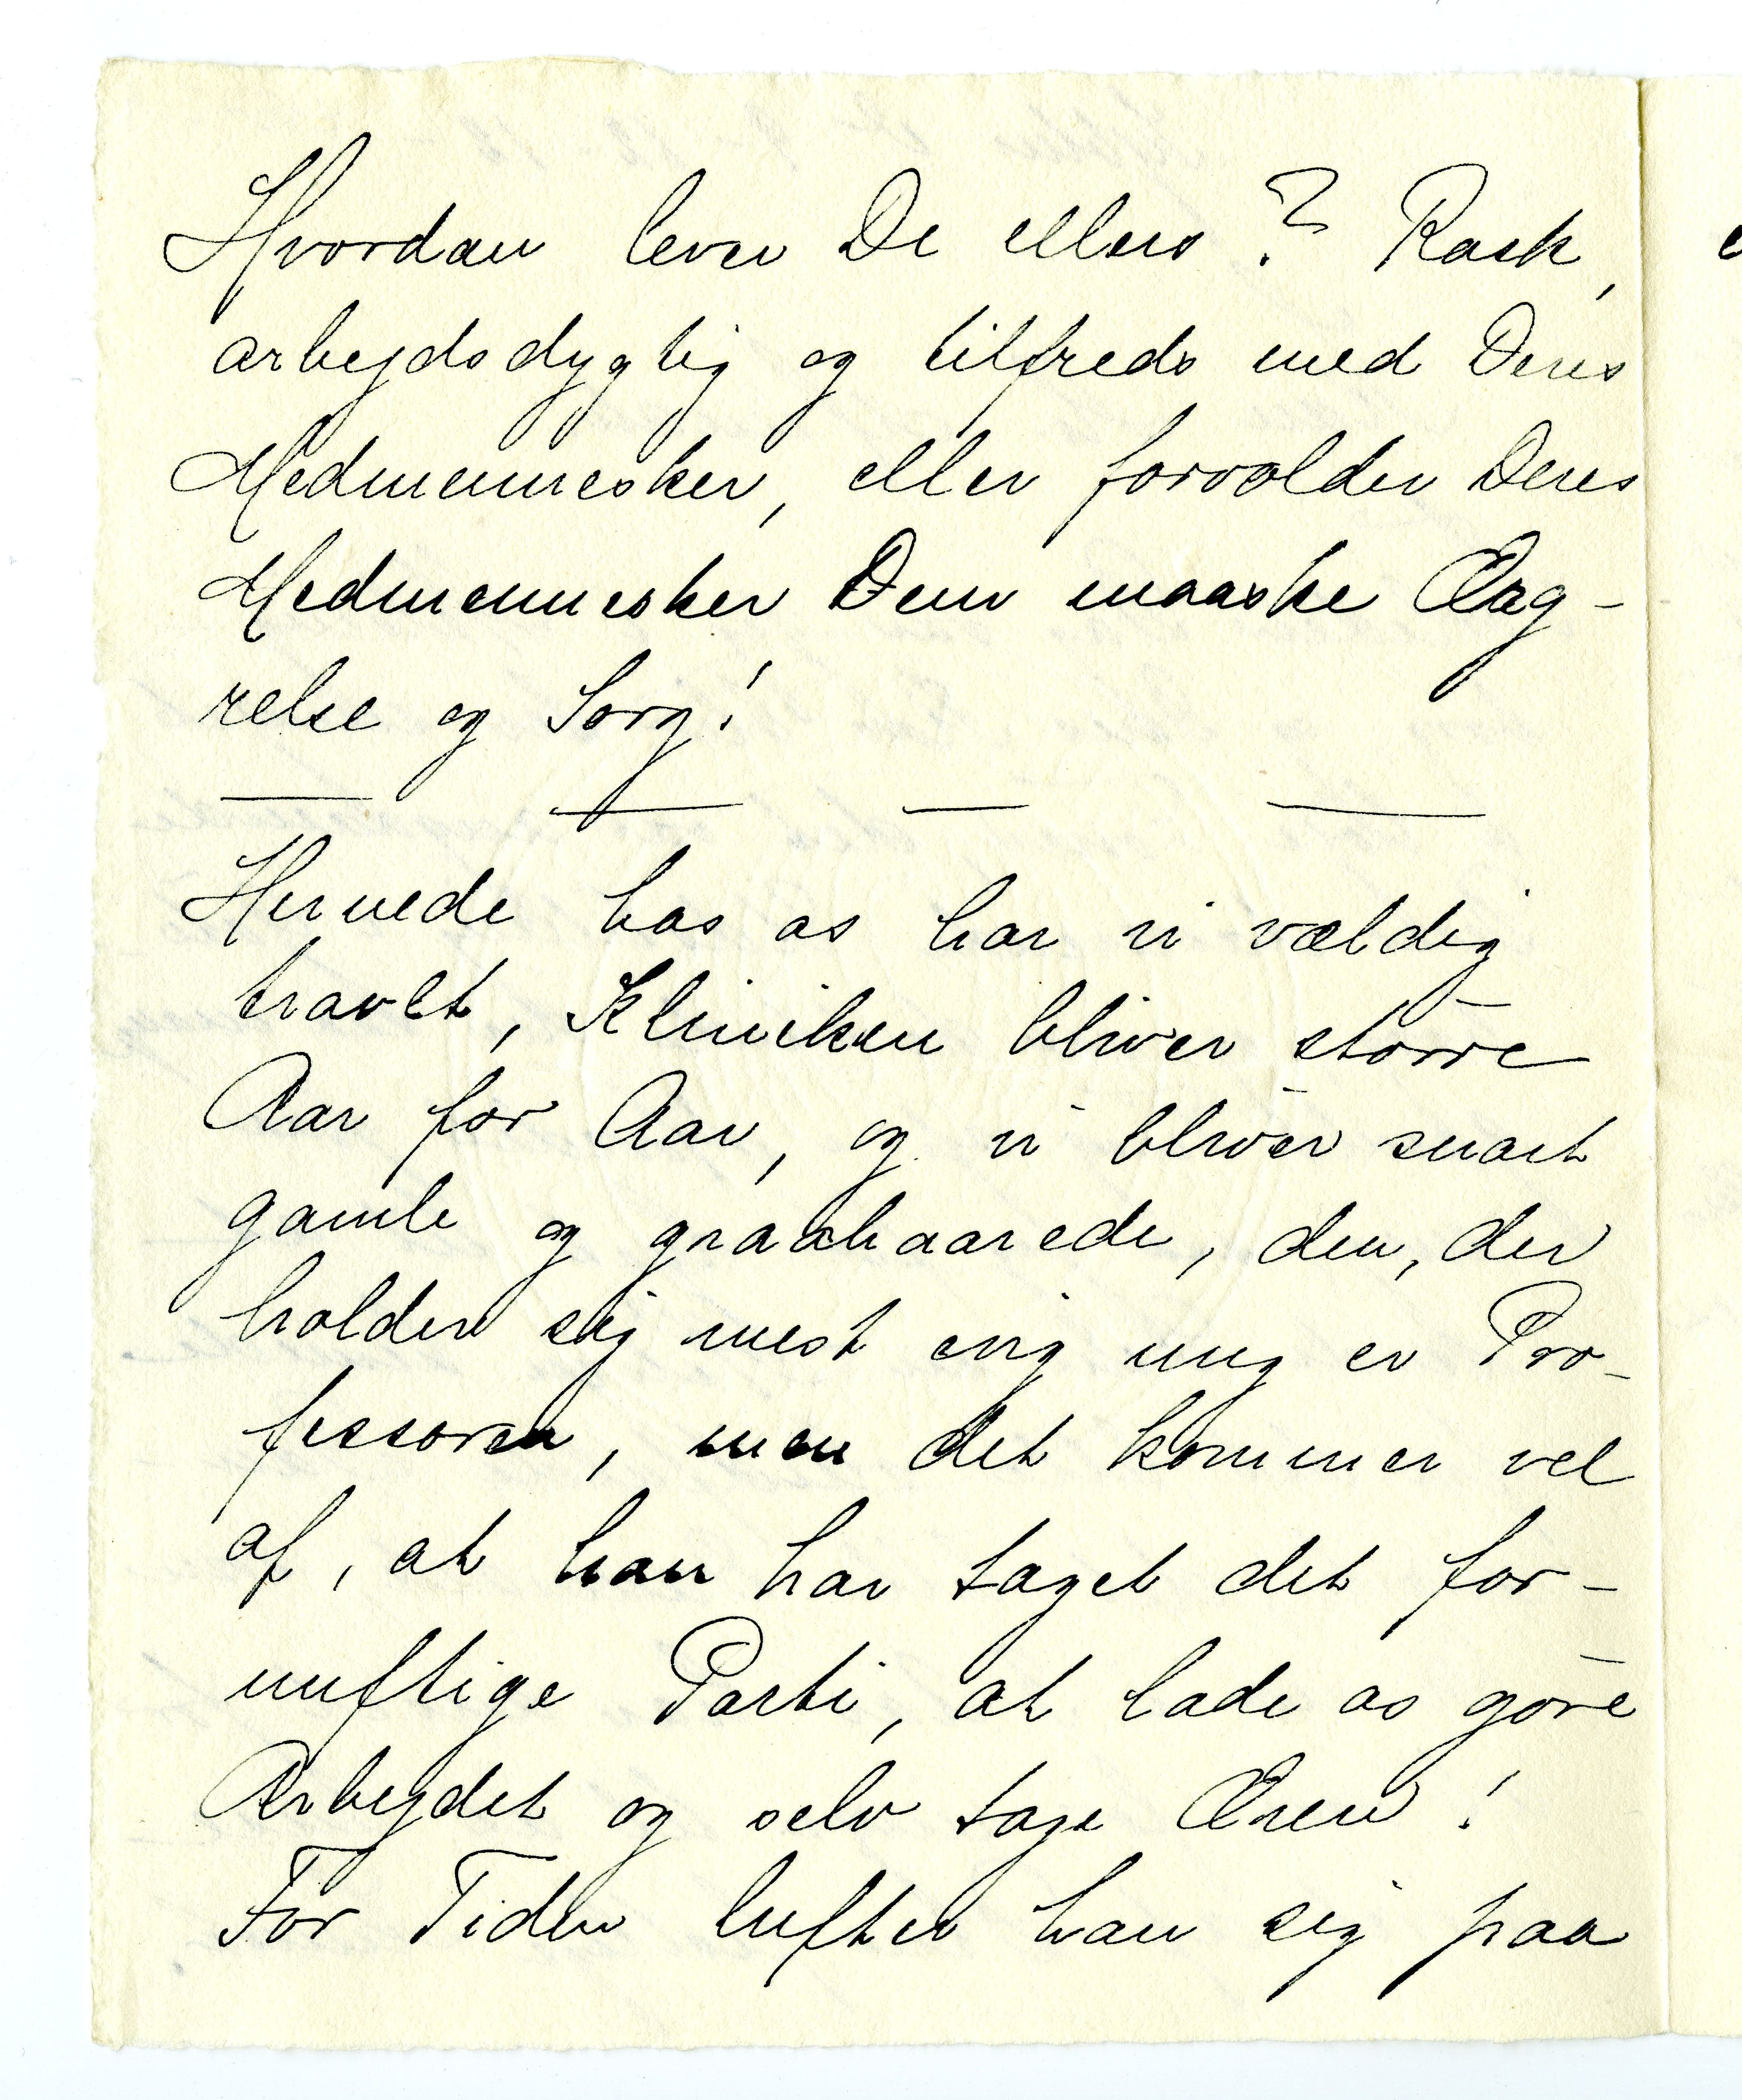 Hvordan lever De ellers? Rask,
arbejdsdygtig og tilfreds med Deres
Medmennesker, eller forvolder Deres
Medmennesker Dem maaske Ærg-
relse og Sorg!
Hernede hos os har vi vældig
travlt, Kliniken bliver større
Aar for Aar, og vi bliver snart
gamle og graahaarede, den, der
holder sig mest evig ung er Pro-
fessoren, men det kommer vel
af, at han har taget det for-
nuftige Parti, at lade os gøre
Arbejdet og selv tage Æren!
For Tiden lufter han sig paa